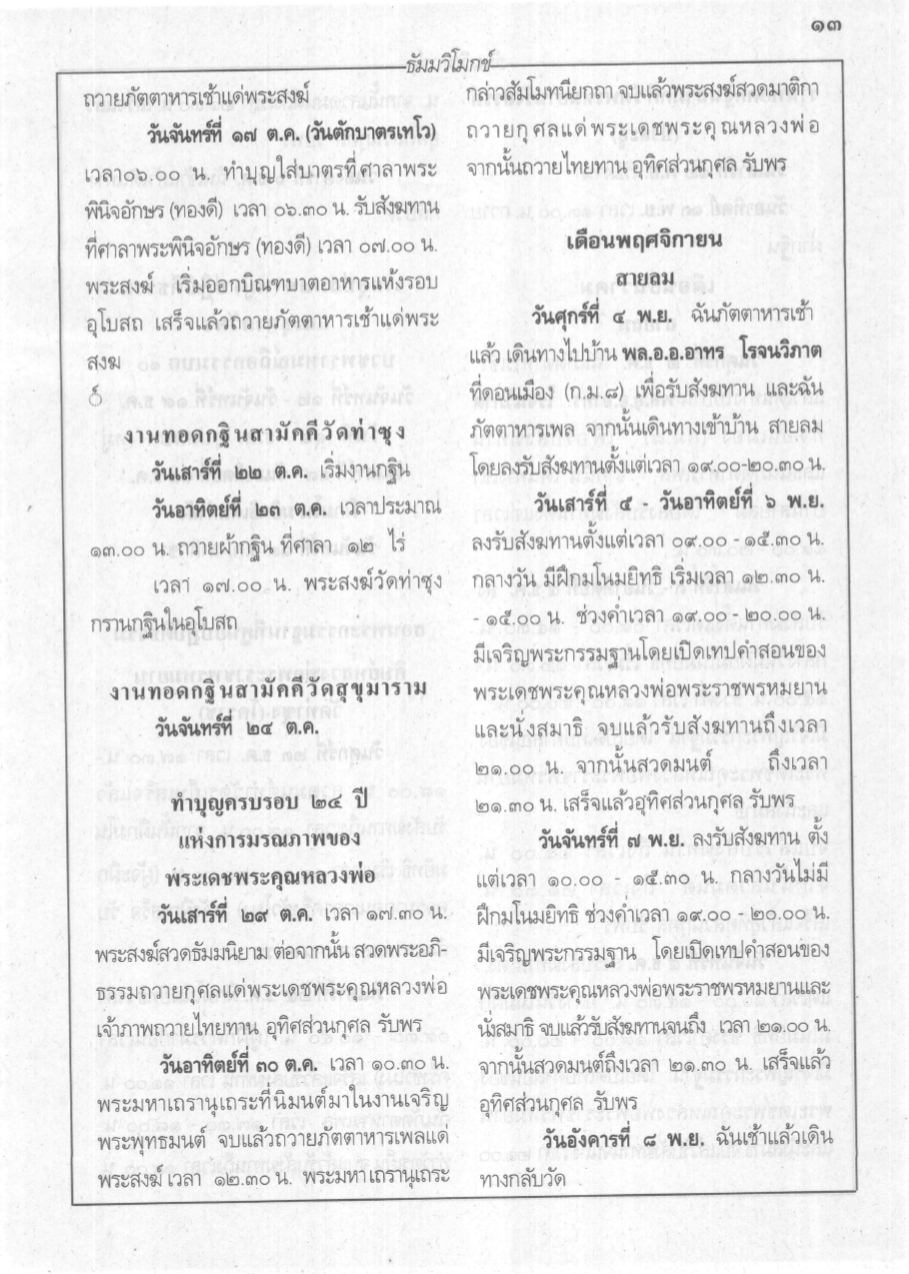 ๑๓
ธัมมวิโมกข์
ถวายภัตตาหารเช้าแด่พระสงฆ์
วันจันทร์ที่ ๑๗ ต.ค. (วันตักบาตรเทโว)
เวลา๐๖.๐๐ น. ทำบุญใส่บาตรที่ศาลาพระ
พินิจอักษร (ทองดี) เวลา ๐๖.๓๐ น. รับสังฆทาน
ที่ศาลาพระพินิจอักษร (ทองดี) เวลา ๐๗.๐๐ น.
พระสงฆ์ เริ่มออกบิณฑบาตอาหารแห้งรอบ
อุโบสถ เสร็จแล้วถวายภัตตาหารเช้าแด่พระ
สงฆ
์
งานทอดกฐินสามัคคีวัดท่าซุง
วันเสาร์ที่ ๒๒ ต.ค. เริ่มงานกฐิน
วันอาทิตย์ที่ ๒๓ ต.ค. เวลาประมาณ
๑๓.๐๐ น. ถวายผ้ากฐิน ที่ศาลา ๑๒ ไร่
เวลา ๑๗.๐๐ น. พระสงฆ์วัดท่าซุง
กรานกฐินในอุโบสถ
งานทอดกฐินสามัคคีวัดสุขุมาราม
วันจันทร์ที่ ๒๔ ต.ค.
ทำบุญครบรอบ ๒๔ ปี
แห่งการมรณภาพของ
พระเดชพระคุณหลวงพ่อ
วันเสาร์ที่ ๒๙ ต.ค. เวลา ๑๗.๓๐ น.
พระสงฆ์สวดธัมมนิยาม ต่อจากนั้น สวดพระอภิ-
ธรรมถวายกุศลแด่พระเดชพระคุณหลวงพ่อ
เจ้าภาพถวายไทยทาน อุทิศส่วนกุศล รับพร
วันอาทิตย์ที่ ๓๐ ต.ค. เวลา ๑๐.๓๐ น.
พระมหาเถรานุเถระที่นิมนต์มาในงานเจริญ
พระพุทธมนต์ จบแล้วถวายภัตตาหารเพลแด่
พระสงฆ์ เวลา ๑๒.๓๐ น. พระมหาเถรานุเถระ
กล่าวสัมโมทนียกถา จบแล้วพระสงฆ์สวดมาติกา
ถวายกุศลแด่พระเดชพระคุณหลวงพ่อ
จากนั้นถวายไทยทาน อุทิศส่วนกุศล รับพร
เดือนพฤศจิกายน
สายลม
วันศุกร์ที่ ๔ พ.ย. ฉันภัตตาหารเช้า
แล้ว เดินทางไปบ้าน พล.อ.อ.อาทร โรจนวิภาต
ที่ดอนเมือง (ก.ม.๘) เพื่อรับสังฆทาน และฉัน
ภัตตาหารเพล จากนั้นเดินทางเข้าบ้าน สายลม
โดยลงรับสังฆทานตั้งแต่เวลา ๑๙.๐๐-๒๐.๓๐ น.
วันเสาร์ที่ ๕ - วันอาทิตย์ที่ ๖ พ.ย.
ลงรับสังฆทานตั้งแต่เวลา ๐๙.๐๐ - ๑๕.๓๐ น.
กลางวัน มีฝึกมโนมยิทธิ เริ่มเวลา ๑๒.๓๐ น.
- ๑๕.๐๐ น. ช่วงค่ำเวลา ๑๙.๐๐ - ๒๐.๐๐ น.
มีเจริญพระกรรมฐานโดยเปิดเทปคำสอนของ
พระเดชพระคุณหลวงพ่อพระราชพรหมยาน
และนั่งสมาธิ จบแล้วรับสังฆทานถึงเวลา
๒๑.๐๐ น. จากนั้นสวดมนต์ ถึงเวลา
๒๑.๓๐ น. เสร็จแล้วอุทิศส่วนกุศล รับพร
วันจันทร์ที่ ๗ พ.ย. ลงรับสังฆทาน ตั้ง
แต่เวลา ๑๐.๐๐ - ๑๕.๓๐ น. กลางวันไม่มี
ฝึกมโนมยิทธิ ช่วงค่ำเวลา ๑๙.๐๐ - ๒๐.๐๐ น.
มีเจริญพระกรรมฐาน โดยเปิดเทปคำสอนของ
พระเดชพระคุณหลวงพ่อพระราชพรหมยานและ
นั่งสมาธิ จบแล้วรับสังฆทานจนถึง เวลา ๒๑.๐๐ น.
จากนั้นสวดมนต์ถึงเวลา ๒๑.๓๐ น. เสร็จแล้ว
อุทิศส่วนกุศล รับพร
วันอังคารที่ ๘ พ.ย. ฉันเช้าแล้วเดิน
ทางกลับวัด